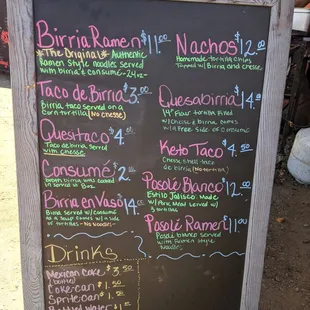 Birria Ramen $11.00
*The Original* Authentic
Ramen Style noodles served
with birria & consumé - 24oz -
Taco de Birria $3.00
Birria taco served on a
corn tortilla (No cheese)
Quesitaco $4.00
Taco de birria served
with cheese
Consumé $2.00
birria was cooked
in served in 8oz.
Birria en Vaso $14.00
Birria served w/consumé
as a soup comes w/ a side
of tortillas - No Noodles
Drinks
Mexican Coke $3.50
Coke can $1.50
Sprite can $1.50
Bottled Water $1
Nachos $12.00
Homemade tortilla chips
Topped w/ Birria and cheese
Quesabirria $14.00
14" flour tortilla filled
w/ Cheese & birria comes
w/ a Free side of consumé
Keto Taco $4.50
Cheese shell taco
de birria (No tortilla)
Posolé Blanco $12.00
Estilo Jalisco made
w/ Pork Meat served w/
3 tortillas
Posolé Ramen $11.00
Posolé blanco served
with Ramen Style
Noodles